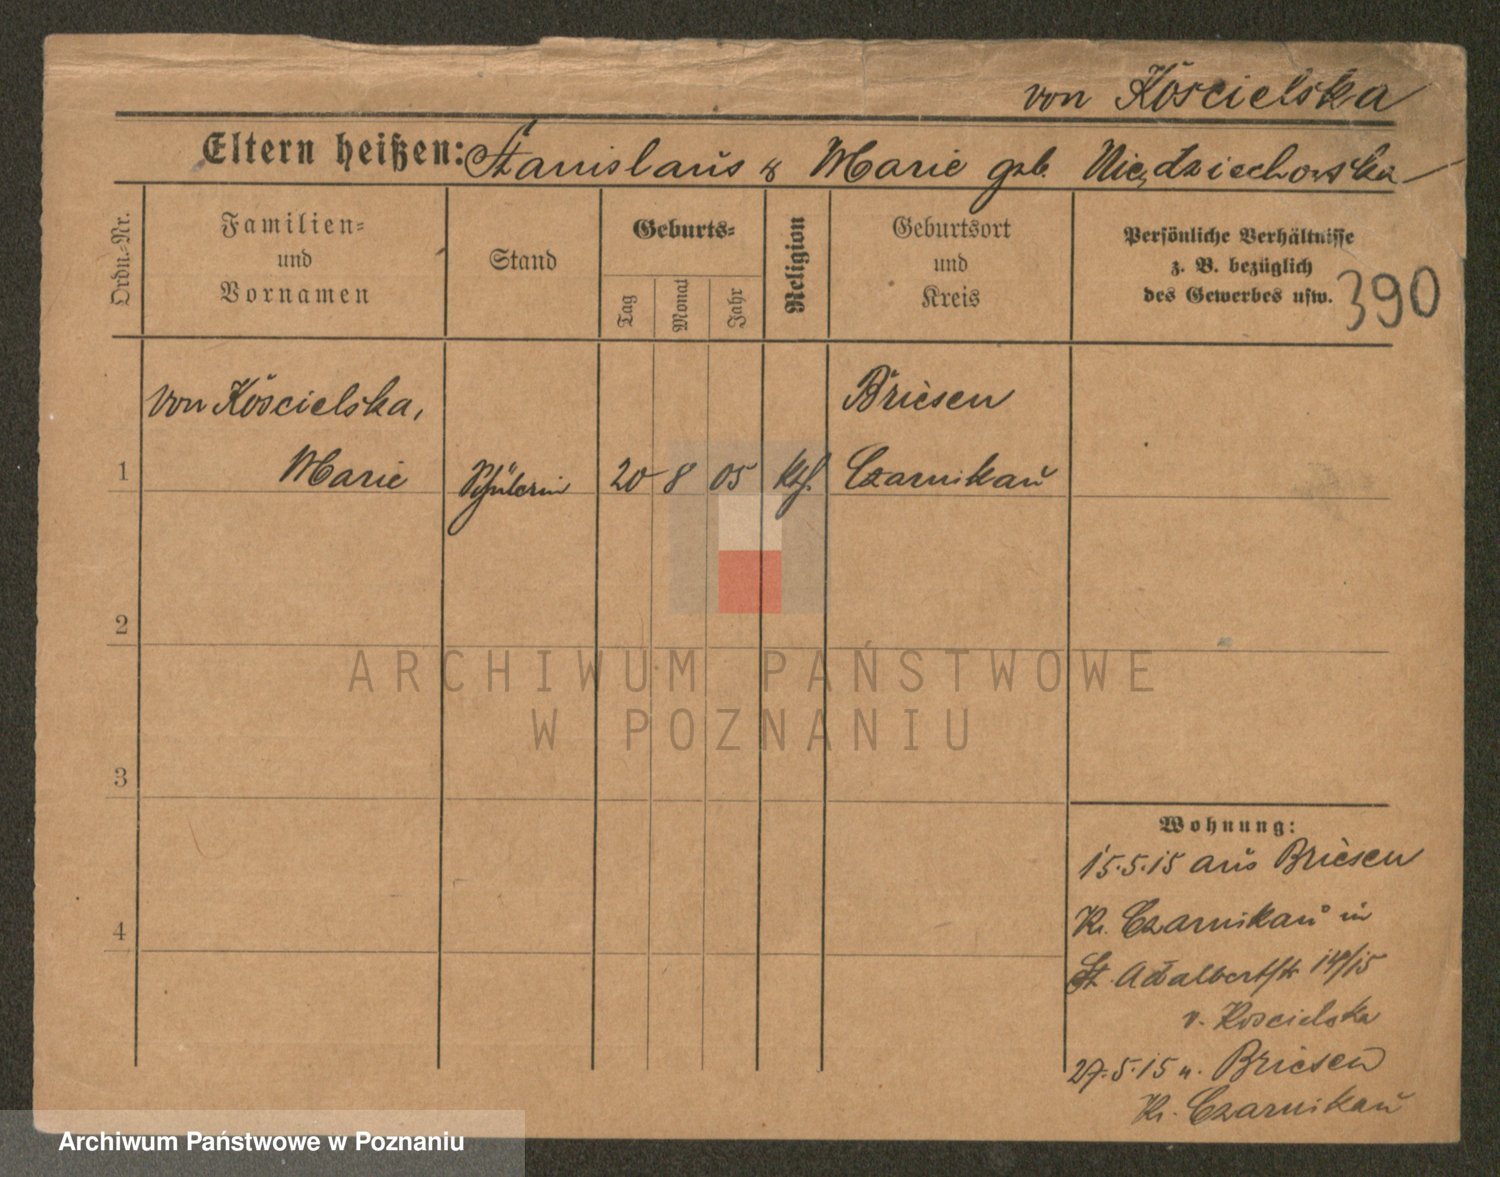 von Kościelska
Eltern heißen: Stanislaus & Marie geb. Niedziechowska
Ordn.-Nr.
Familien-
und
Vornamen
Stand
Geburts-
Tag
Monat
Jahr
Religion
Geburtsort
und
Kreis
Persönliche Verhältnisse
z. B. bezüglich
des Gewerbes usw.
390
von Kościelska,
Briesen
1 Marie Schülerin 20 8 05 kth. Czarnikau
2
3
4
Wohnung:
15.5.15 aus Briesen
Kr. Czarnikau in
St. Adalbertstr 14/15
v. Koscielska
27.5.15 n. Briesen
Kr. Czarnikau
ARCHIWUM PAŃSTWOWE
W POZNANIU
Archiwum Państwowe w Poznaniu